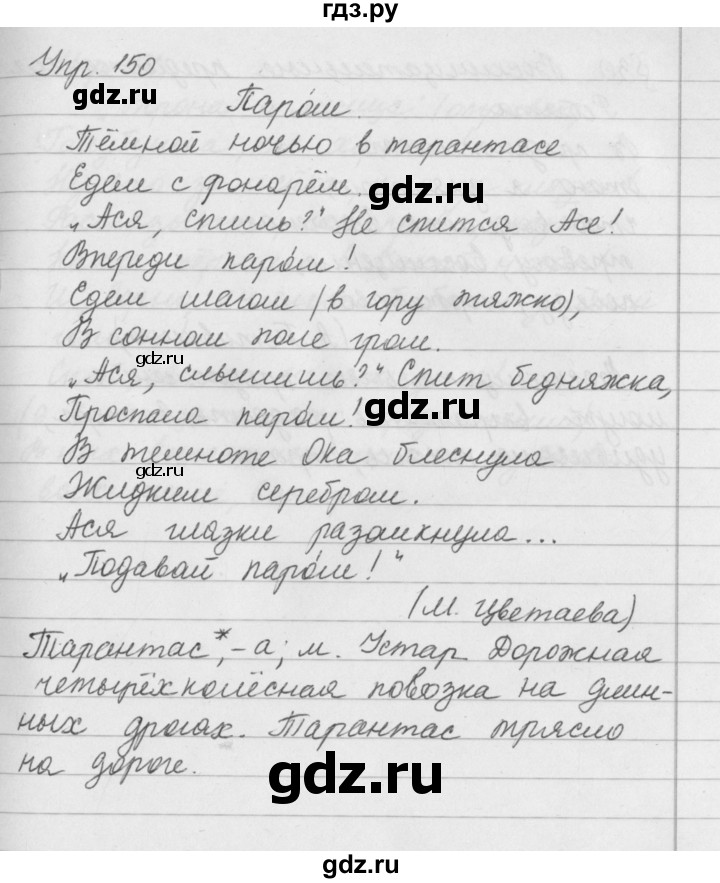 гдз.ру
Упр. 150
gdz.ru
Паро́м.
Тёмной ночью в тарантасе
Едем с фонарём.
gdz.ru
„Ася, спишь?" Не спится Асе!
Впереди паро́м!
Едем шагом (в гору тяжко),
В сонном поле гром.
gdz.ru
„Ася, слышишь?" Спит бедняжка,
Проспала паро́м!
gdz.ru
В темноте Ока блеснула
Жидким серебром.
Ася глазки разомкнула...
„Подавай паро́м!"
(М. Цветаева)
Тарантас*, -а; м. Устар Дорожная
четырёхколёсная повозка на длин-
ных дрогах. Тарантас трясло
на дороге.
gdz.ru
gdz.ru